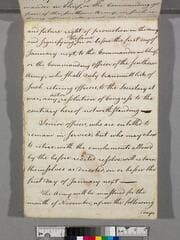 and future right of promotion in the army
and signifying on or before the first day of
January next to the Commander in Chief
or the Commanding officer of the southern
Army, who shall duly transmit lists of
such retiring officers to the Secretary at
war, any resolution of Congress to the
contrary hereof notwithstanding
Junior officers, who are entitled to
remain in service, but who may choose
to retire with the emoluments allowed
by the before recited resolve will return
themselves as directed on or before the
first day of January next
The Army will be mustered for the
month of November upon the following
days